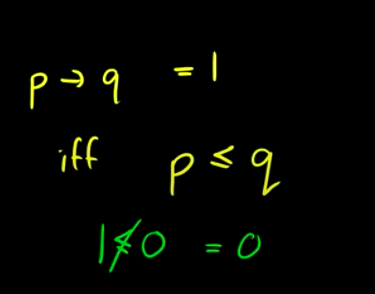 p → q = 1
iff p ≤ q
1 ≰ 0 = 0